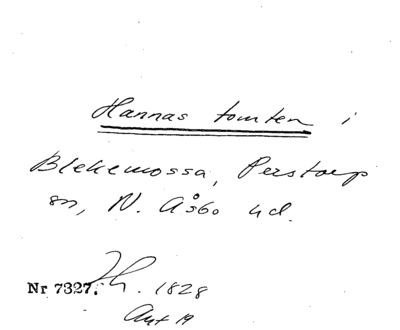 Hannas tomten i
Blekemossa, Perstorp
sn, N. Åsbo hd.
Nr 7327. Lh. 1828
Ant 19